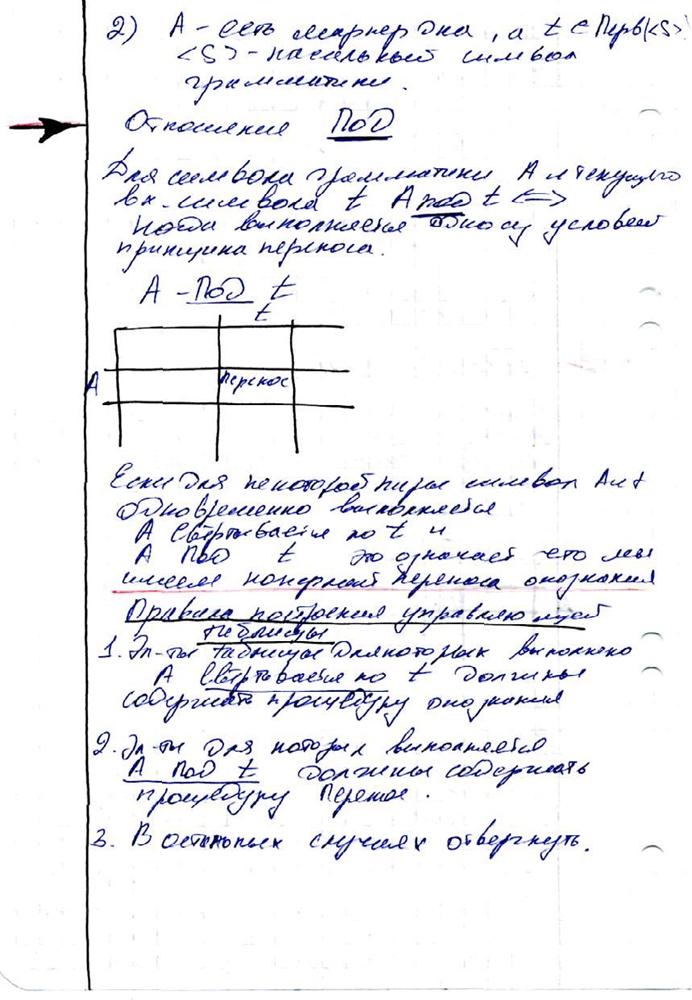 2) А - есть маркер дна, а t ∈ Перв(<S>)
<S> - начальный символ
грамматики.
Отношение ПОД
Для символа грамматики А и текущего
вх. символа t А под t <=>
когда выполняется одно из условий
принципа переноса.
А - ПОД t
t
А перенос
Если для некоторой пары символ А и t
одновременно выполняется
А свертывается по t и
А ПОД t это означает что мы
имеем конфликт переноса опознания
Правила построения управляющей
таблицы
1. Эл-ты таблицы для которых выполнено
А свертывается по t должны
содержать процедуру опознания
2. Эл-ты для которых выполняется
А под t должны содержать
процедуру Перенос.
3. В остальных случаях отвергнуть.